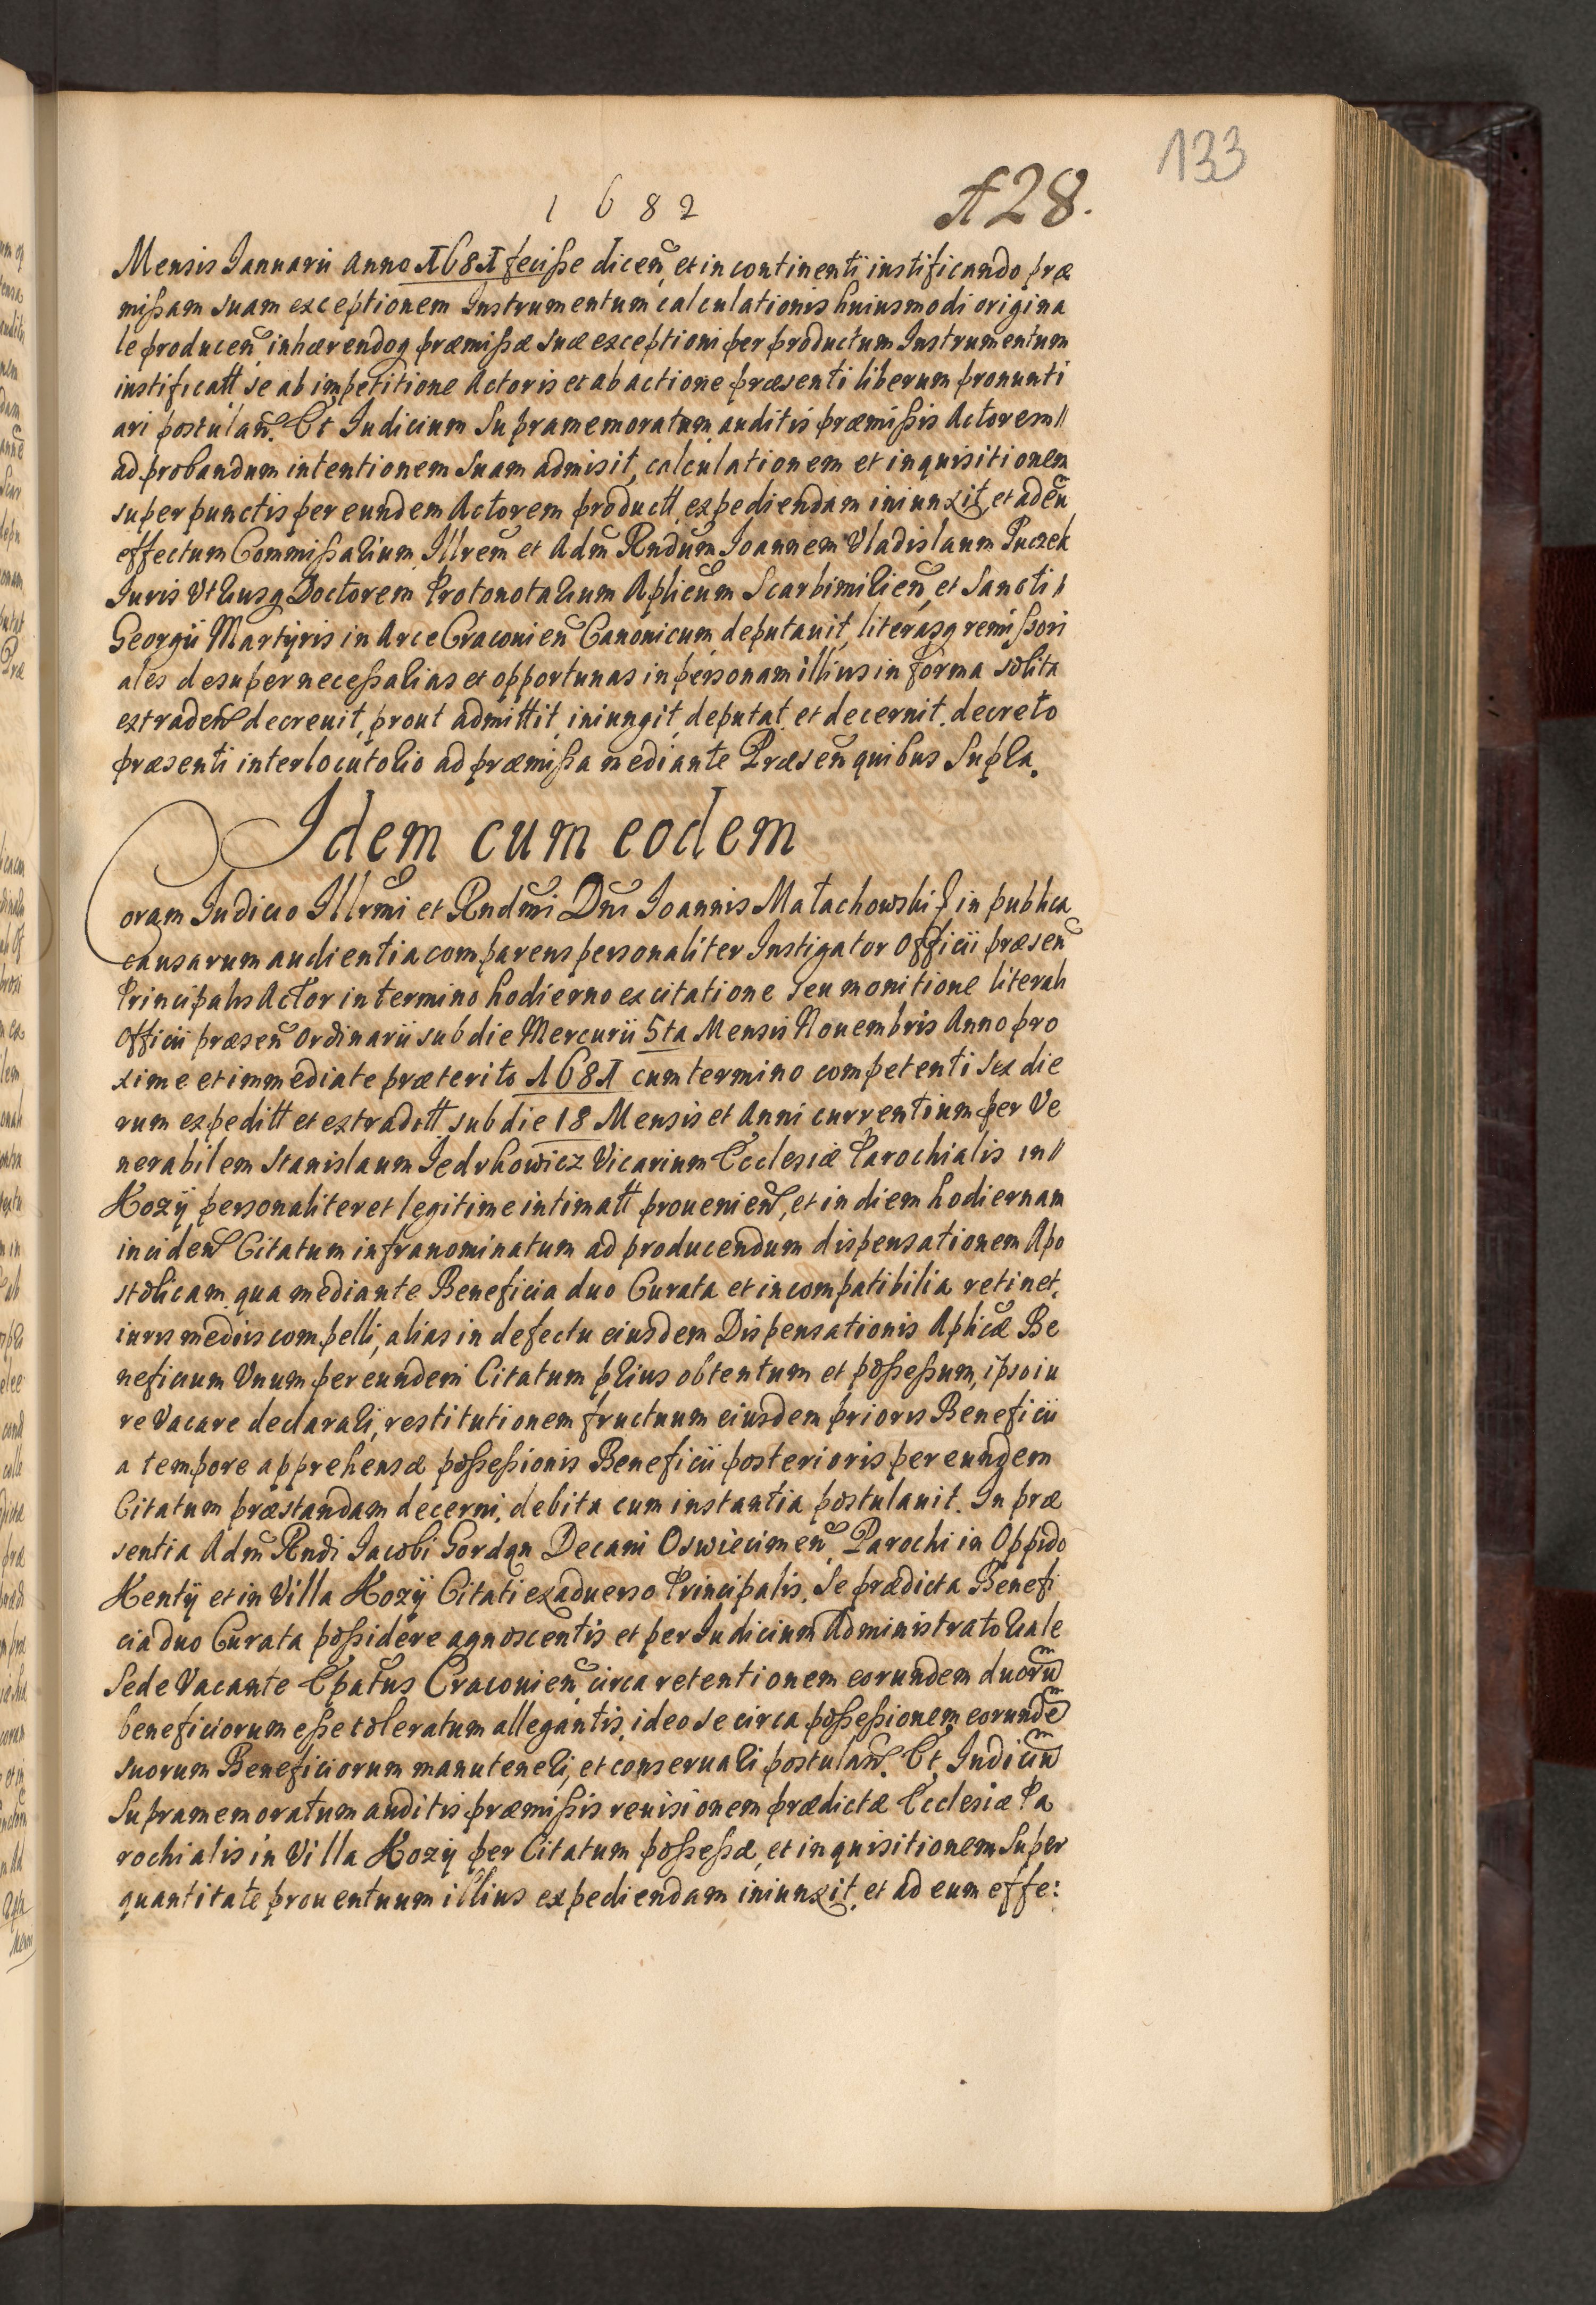 133
1682
A28.
Mensis Ianuarii Anno 1681 fecisse dicen̄, et in continenti iustificando præ
missam suam exceptionem Instrumentum calculationis huiusmodi origina
le producen̄ inhærendoq præmissæ suæ exceptioni per productum Instrumentum
iustificatt se ab impetitione Actoris et ab actione præsenti liberum pronunti
ari postulan̄. Et Iudicium Supramemoratum auditis præmissis Actorem //
ad probandum intentionem suam admisit, calculationem et inquisitionem
super punctis per eundem Actorem productt expediendam iniunxit, et ad eū
effectum Commissarium Illrem̄ et Adm̄ Rndum̄ Ioannem Vladislaum Puczek
Iuris Vtriusq Doctorem Protonotarium Aplicum̄ Scarbimirien̄, et Sancti /
Georgii Martyris in Arce Cracouien̄ Canonicum deputauit, literasq remissori
ales desuper necessarias et opportunas in personam illius in forma solita
extraden̄ decreuit, prout admittit, iniungit, deputat et decernit. decreto
præsenti interlocutorio ad præmissa mediante Præsen̄ quibus Supra.
Idem cum eodem
Coram Iudicio Illrmi et Rndmi Dn̄i Ioannis Małachowski in publica
causarum audientia comparens personaliter Instigator Officii præsen̄
Principalis Actor in termino hodierno ex citatione seu monitione literali
Officii præsen̄ Ordinarii sub die Mercurii 5ta Mensis Nouembris Anno pro
xime et immediate præterito 1681 cum termino competenti sex die
rum expeditt et extraditt sub die 18 Mensis et Anni currentium per Ve
nerabilem Stanislaum Jedrkowicz Vicarium Ecclesiæ Parochialis in //
Kozÿ personaliter et legitime intimatt prouenien̄, et in diem hodiernam
inciden̄ Citatum infranominatum ad producendum dispensationem Apo
stolicam qua mediante Beneficia duo Curata et incompatibilia retinet,
iuris mediis compelli, alias in defectu eiusdem Dispensationis Aplicæ Be
neficium Vnum per eundem Citatum prius obtentum et possessum, ipso iu
re Vacare declarari, restitutionem fructuum eiusdem prioris Beneficii
a tempore apprehensæ possessionis Beneficii posterioris per eundem
Citatum præstandam decerni, debita cum instantia postulauit. In præ
sentia Adm̄ Rndi Iacobi Gordan Decani Oswiecimen̄, Parochi in Oppido
Kentÿ et in Villa Kozÿ Citati ex aduerso Principalis. Se prædicta Benefi
cia duo Curata possidere agnoscentis et per Iudicium Administratoriale
Sede Vacante Epatus Cracouien̄ circa retentionem eorundem duorū
beneficiorum esse toleratum allegantis, ideo se circa possessionem eorundē
suorum Beneficiorum manuteneri, et conseruari postulan̄. Et Iudiciū
Supramemoratum auditis præmissis reuisionem prædictæ Ecclesiæ Pa
rochialis in Villa Kozÿ per Citatum possessæ, et inquisitionem Super
quantitate prouentuum illius expediendam iniunxit, et ad eum effe: